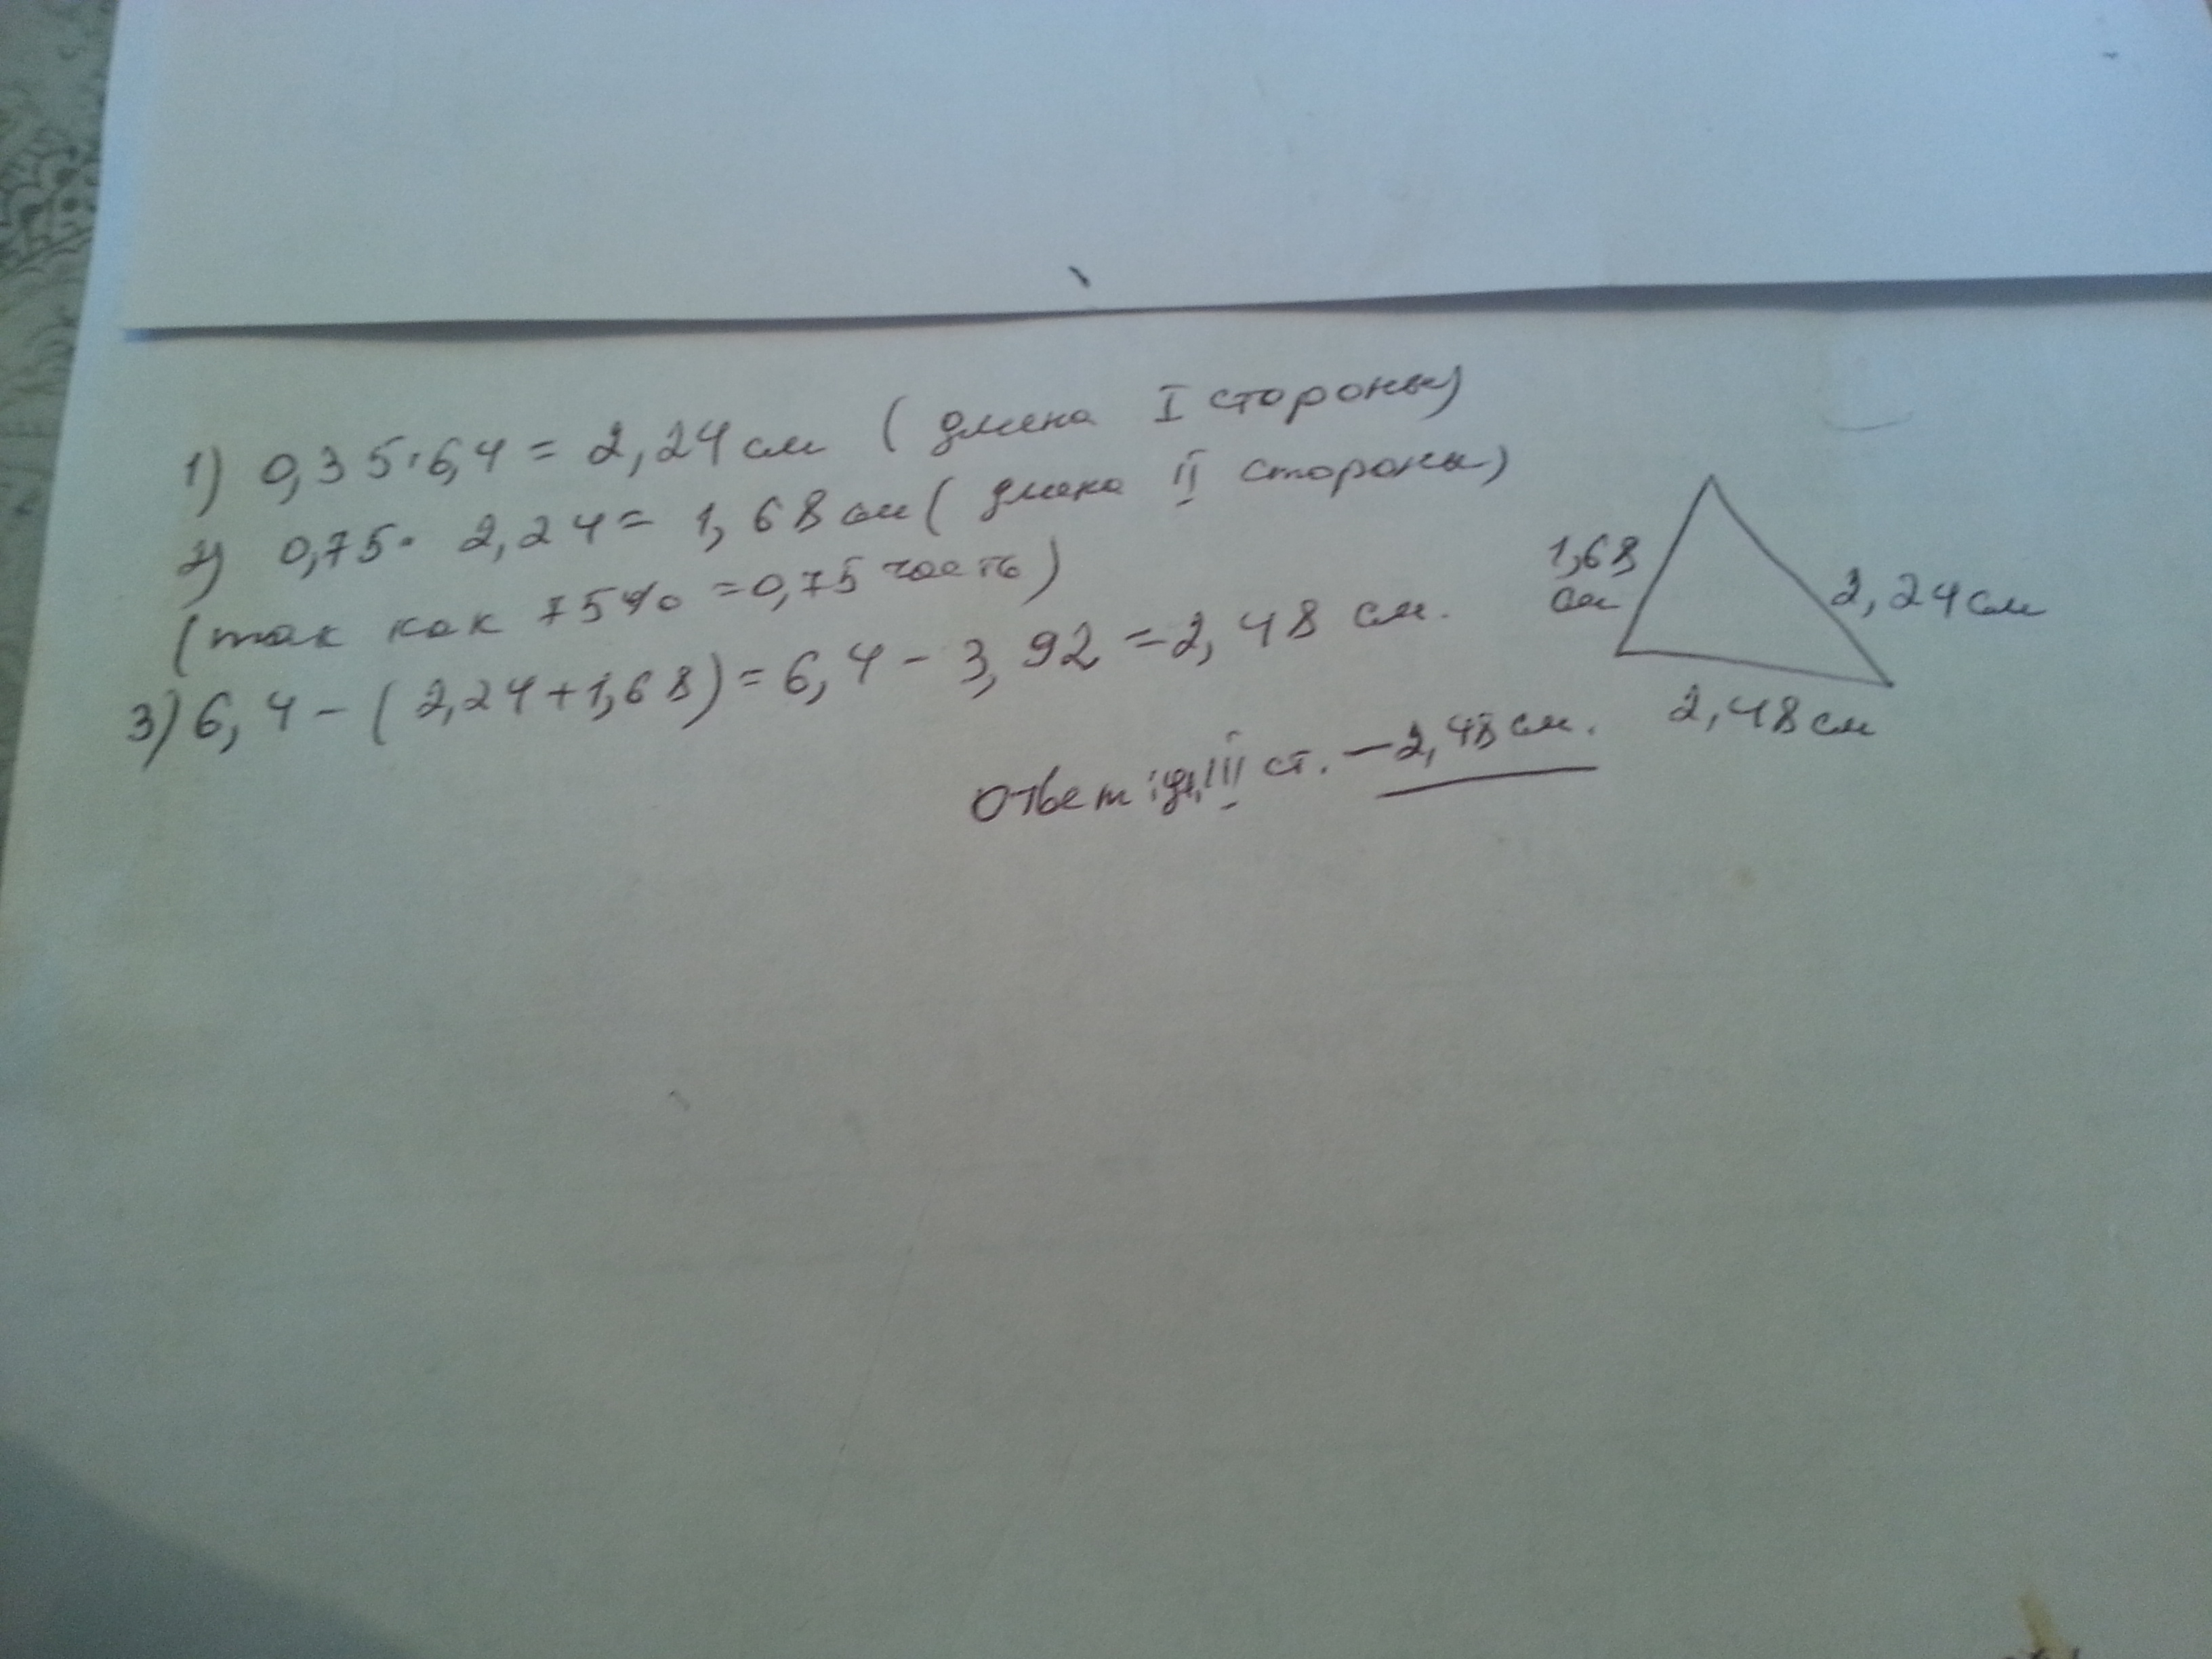 1) 0,35·6,4 = 2,24 см ( длина I стороны)
2) 0,75· 2,24 = 1,68 см ( длина II стороны)
(так как 75% = 0,75 часть)
3) 6,4 - (2,24+1,68) = 6,4 - 3,92 = 2,48 см.
Ответ: дл. III ст. — 2,48 см.
1,68
см
2,24 см
2,48 см